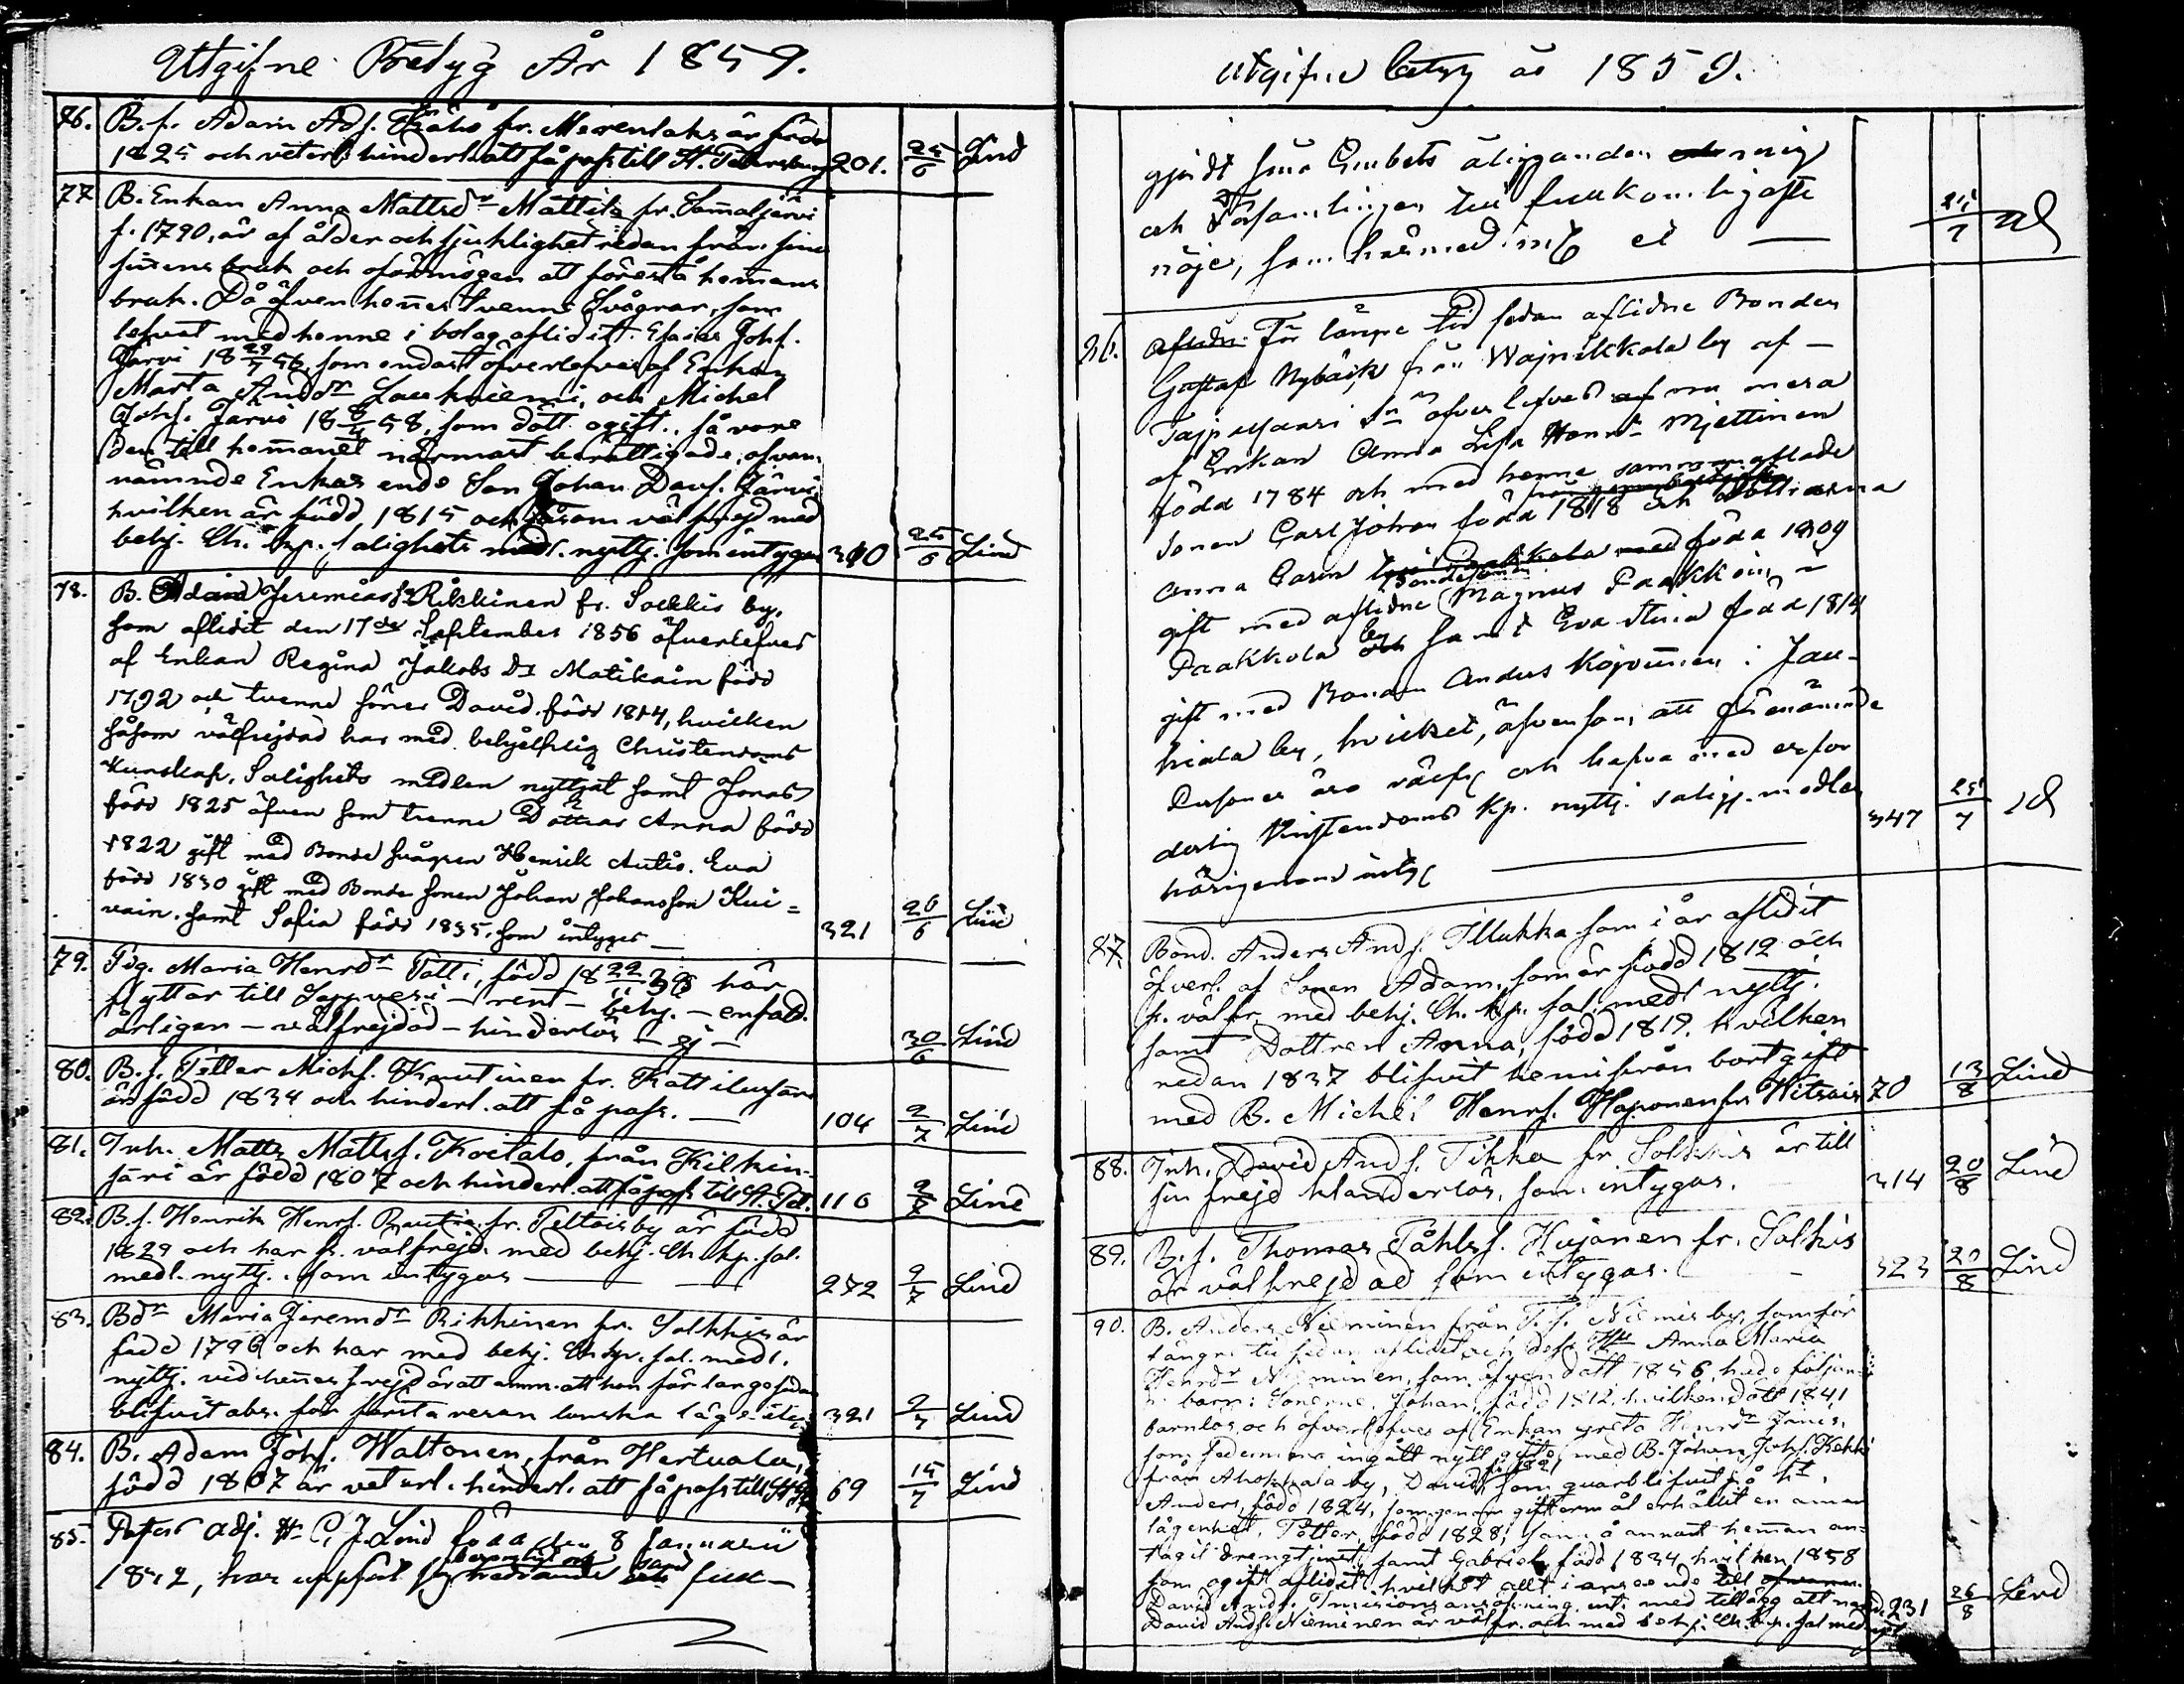 Utgifne Betyg År 1859.
76. B. s. Adam Ads. fr. är född
1825 och veterl. hinderl. att få pass till St. Petersburg 201. 25/6 Lind
77 B. Enkan Anna Mattsdr Mattila fr.
f. 1790, är af ålder och sjuklighet redan från sina
sinnens bruk och oförmögen att förestå hemmans
bruk. Då äfven hennes tvenne Svågrar, som
lefvat med henne i bolag aflidit. Esaias Johs.
Järvi 18 29/7 56, som endast öfverlefves af Enkan
Marta Andsdr och Michel
Johs. Järvi 18 58, som dött ogift, så vore
den till hemmanet närmast berättigade, ofvan-
nämnde Enkas enda Son Johan Davs. Järvi,
hvilken är född 1815 och såsom välfrejd med
behj. Ch. kp. salighets medl. nyttj. som intygas 310 25/6 Lind
78. B. Adam Jeremiass. Rikkinen fr. Solkkis by,
som aflidit den 17de September 1856 öfverlefves
af Enkan Regina Jakobs Dr Matikain född
1792 och tvenne söner David född 1814, hvilken
såsom välfrejdad har med behjelplig Christendoms
Kunskap, Salighets medlen nyttjat samt Jonas
född 1825 äfven som trenne Döttrar Anna född
1822 gift med Bonde svågren Henrik Autio. Eva
född 1830 gift med Bonde sonen Johan Johansson Kui=
vain. samt Sofia född 1835. som intygas 321 26/6 Lind
79. Pig. Maria Henrdr Tatti, född 18 22/11 38 här
flyttar till Joppvesi - rent - behj. - enfald.
årligen - välfrejdad - hinderlös - ej - 30/6 Lind
80. B. s. Petter Michs. Kautinen fr.
är född 1834 och hinderl. att få pass. 104 2/7 Lind
81. Inh. Matts Mattss. Koitalo, från Kilkin-
järi är född 1807 och hinderl. att få pass till St. Pd. 110 Lind
82. B. s. Henrik Henrs. Rautia fr. by är född
1829 och har fr. välfrejd. med behj. Ch. kp. sal.
medl. nyttj. som intygas 272 2/7 Lind
83. Bdr Maria Jeremdr Rikkinen fr. Solkkis är
född 1796 och har med behj. Ch. kp. sal. medl.
nyttj. vid hennes frejd är att anm. att hon för länge sedan
blifvit abs. för första resan 321 2/7 Lind
84. B. Adam Johs. Waltonen, från Hertuala,
född 1807 är veterl. hinderl. att få pass till 69 15/7 Lind
85. adj. Hr C. J. Lind född den 8 Januarii
1812, har uppfört sig samt full-
utgifne betyg år 1859.
gjordt sina Embets åligganden mig
och Församlingen till fullkomligaste
nöje, som härmed 25/7
86. För längre tid sedan aflidne Bonden
Gustaf Nybäck från Wajnikkala by af
öfverlefves nu mera
af Enkan Anna Lisa Henrdr Mjettinen
född 1784 och med henne sammanaflade
sonen Carl Johan född 1818 och döttrarna
Anna Carin född 1809
gift med aflidne Bondesonen Magnus Paakkoin
Paakkola by samt Eva Stina född 1814
gift med Bonden Anders Kojonen i Jau-
hiala by, hvilket, äfvensom, att förenämnde
Personer äro välfr. och hafva med erfor
derlig Kristendoms kp. nyttj. saligg. medlen
härigenom intyg. 347 25/7
87. Bond. Anders Ands. Illukka som i år aflidit
öfverl. af Sonen Adam, som är född 1812 och
fr. välfr. med behj. Ch. kp. sal. medl. nyttj.
samt Dottren Anna, född 1819, hvilken
redan 1837 blifvit hemifrån bortgift
med B. Michel Henrs. Haponen fr. Witsai 70 13/8 Lind
88. Inh. David Ands. Tikka fr. Solkkis är till
sin frejd klanderlös, som intygas. 314 20/8 Lind
89. B. s. Thomas Påhls s. Hujanen fr. Solkis
är välfrejdad som intygas. 323 20/8 Lind
90. B. Anders Nieminen från Niemis by, som för
längre tid sedan aflidit och dess Hu Anna Maria
Henrdr Nieminen, som äfven dött 1856, hade följan-
barn: Sönerne, Johan, född 1812, hvilken dött 1841
barnlös och öfverlefves af Enkan Greta Henrdr
som sedermera ingått nytt gifte med B. Johan Johs. Kekki
från Ahokkala by, David, som quarblifvit på ht.
Anders, född 1824, som genom giftermål erhållit en annan
lägenhet, Petter, född 1828, som å annat hemman an-
tagit drengtjenst, samt Gabriel, född 1834, hvilken 1858
som ogift aflidit, hvilket allt i anseende till
David Ands. ansökning, med tillägg att
David Ands. Nieminen är välfr. och med behj. Ch. kp. sal. medl. 231 26/8 Lind